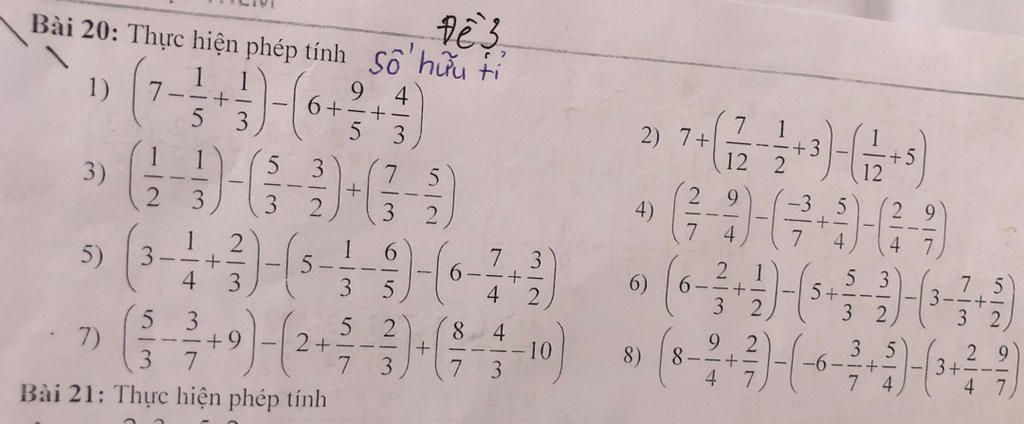 Đề 3
Bài 20: Thực hiện phép tính số hữu tỉ
1) (7 - 1/5 + 1/3) - (6 + 9/5 + 4/3)
2) 7 + (7/12 - 1/2 + 3) - (1/12 + 5)
3) (1/2 - 1/3) - (5/3 - 3/2) + (7/3 - 5/2)
4) (2/7 - 9/4) - (-3/7 + 5/4) - (2/4 - 9/7)
5) (3 - 1/4 + 2/3) - (5 - 1/3 - 6/5) - (6 - 7/4 + 3/2)
6) (6 - 2/3 + 1/2) - (5 + 5/3 - 3/2) - (3 - 7/3 + 5/2)
7) (5/3 - 3/7 + 9) - (2 + 5/7 - 2/3) + (8/7 - 4/3 - 10)
8) (8 - 9/4 + 2/7) - (-6 - 3/7 + 5/4) - (3 + 2/4 - 9/7)
Bài 21: Thực hiện phép tính